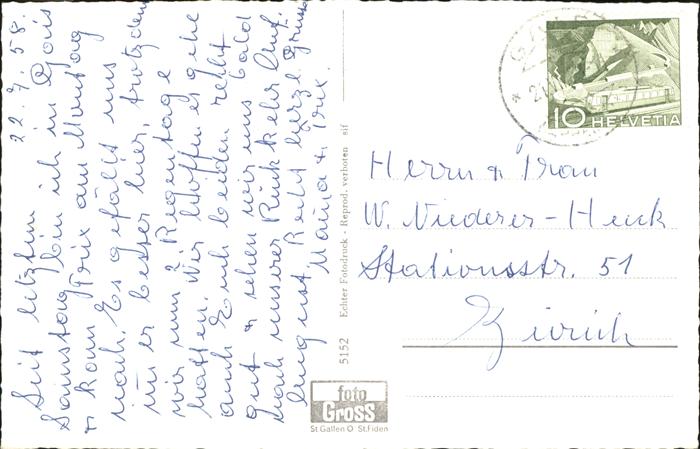 22.7.58.
Seit letzten
Samstag bin ich in Gais
& kam Trix am Montag
nach. Es gefällt uns
immer besser hier, trotzdem
wir nur 2 Regentage
hatten. Wir hoffen es gehe
auch Euch beiden recht
gut & sehen wir uns bald
nach unserer Rückkehr Anf.
August. Recht herzl. Grüsse
& Trix.
5152 Echter Fotodruck - Reprod. verboten sif
foto
Gross
St Gallen O St. Fiden
10 HELVETIA
Herrn & Frau
W. Niederer-Heuk
Stationsstr. 51
Zürich